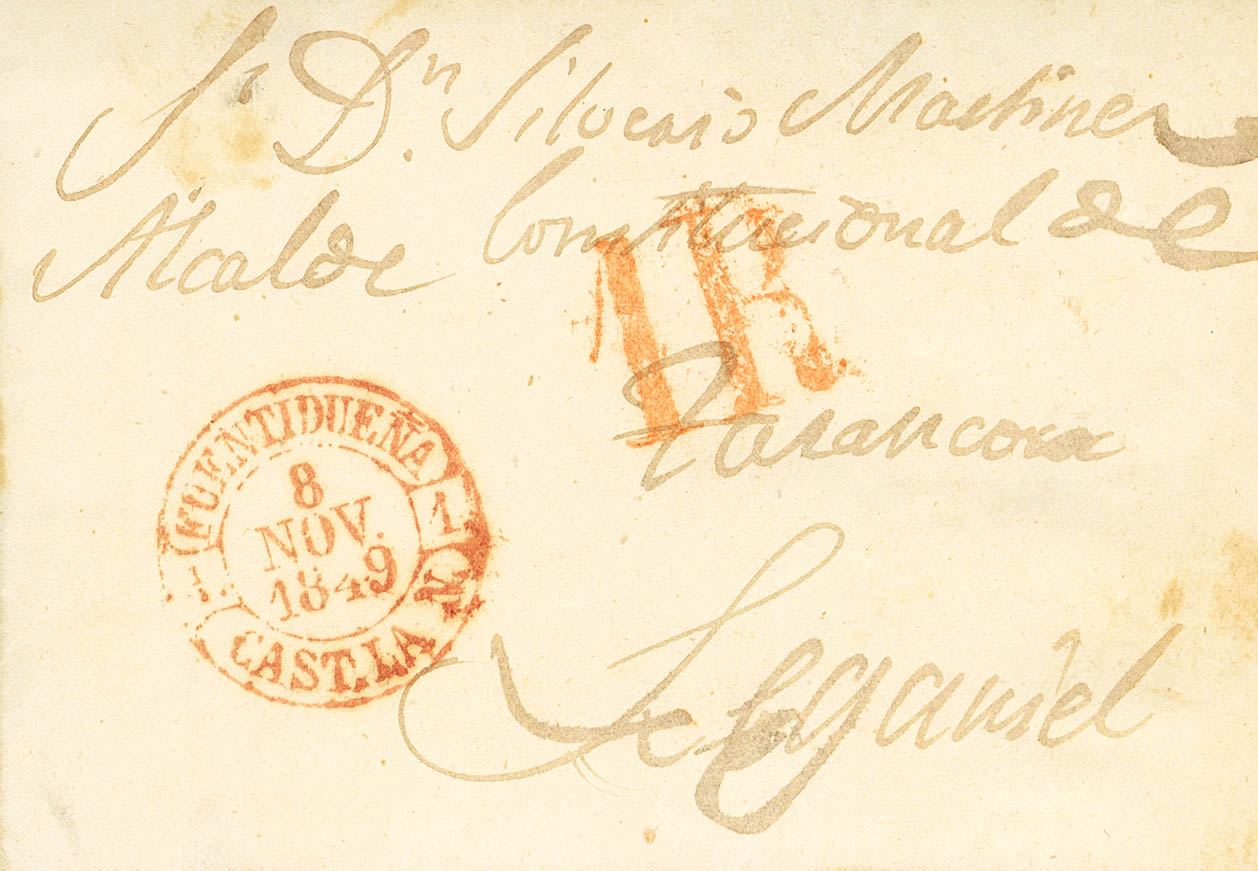 Sr Dn. Silverio Martinez
Alcalde Constitucional de
1R
Tarancora
FUENTIDUEÑA
8
NOV.
1849
1.
1.
CAST. LA N.
Leganiel